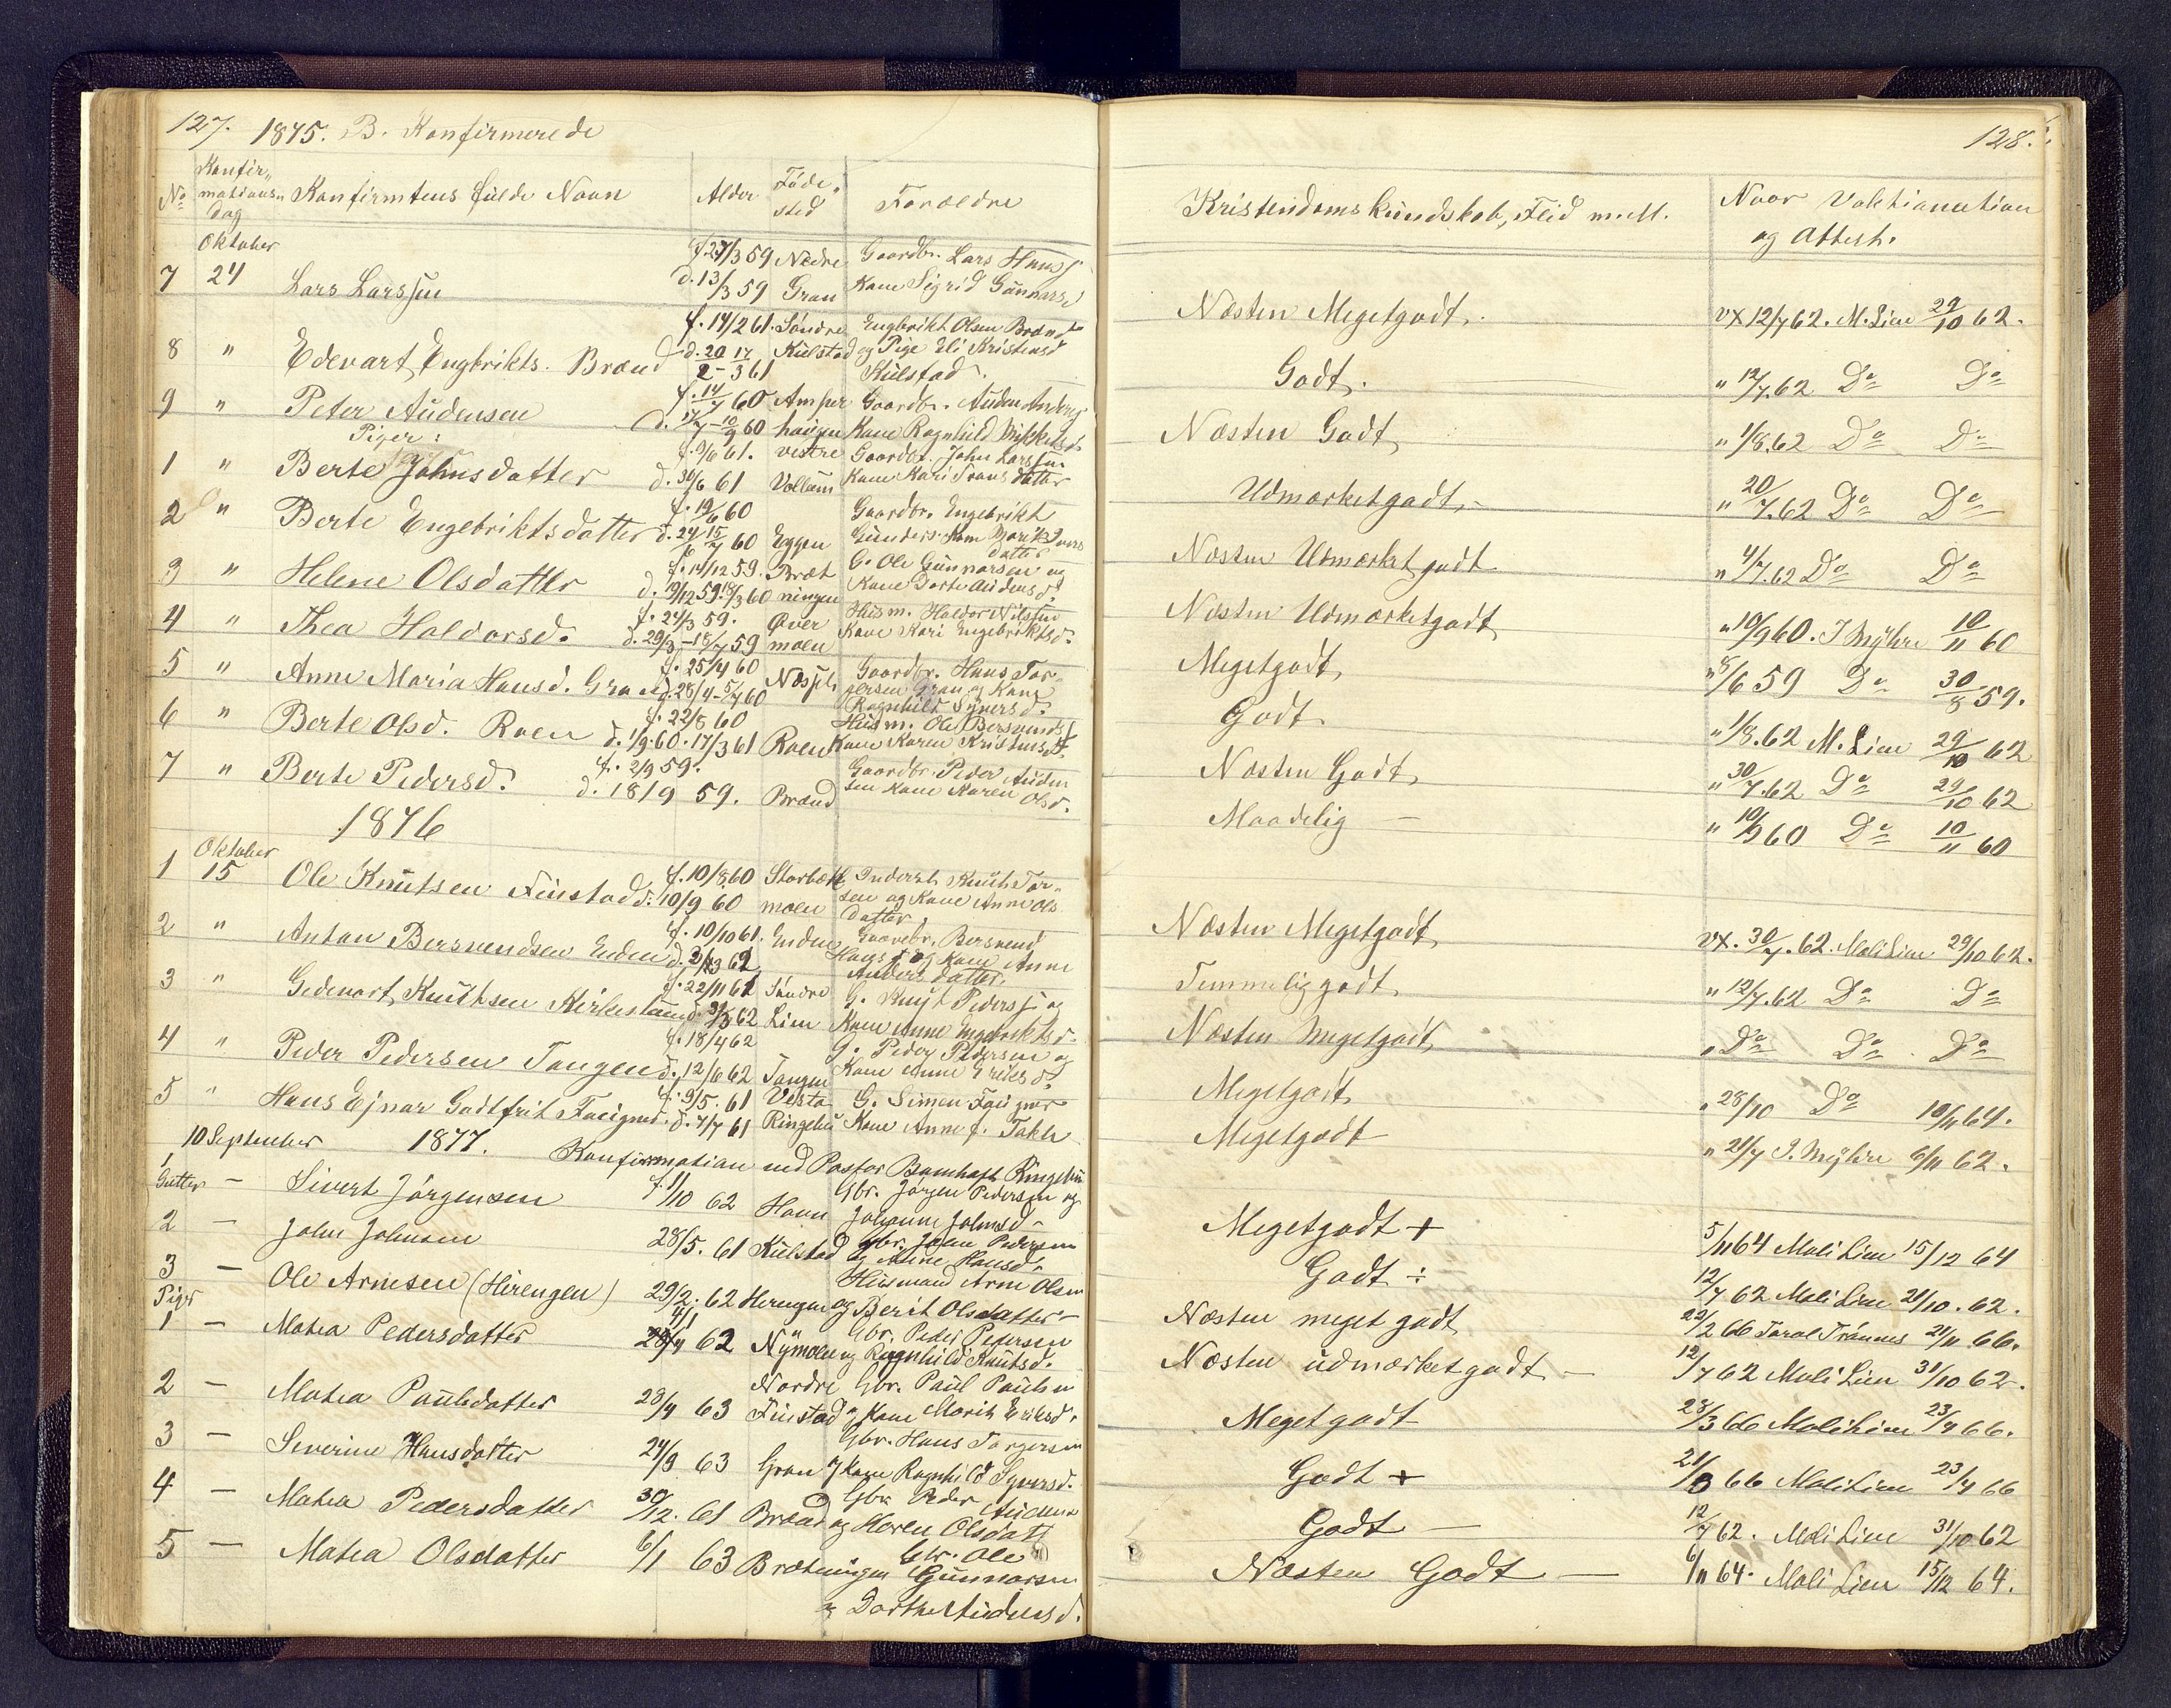 127. 1875. B. Konfirmerede
No Konfir„ mations„ dag Konfirmtens fulde Navn Alder Føde„ sted Forældre
Oktober
7 24 Lars Larssen f. 27/3 59 d. 13/3 59 Nedre Gran Gaardbr. Lars Hans Kone Sigrid Gunnarsd
8 " Edevart Engbrikts. Brænd f. 14/2 61. d. 20/2 - 17/3 61 Søndre Kulstad Engbrikt Olsen Brænd og Pige Eli Kristensd Kulstad.
9 " Peter Audensen f. 14/7 60 d. 17/7 - 10/9 60 Amper haugen Gaardbr. Auden Anders Kone Ragnhild Mikkelsd.
Piger:
1 " Berte Johnsdatter f. 9/6 61. d. 30/6 61 vestre Vollum Gaardbr. John Larssen Kone Kari Transdatter
2 " Berte Engebriktsdatter f. 19/6 60 d. 24/6 15/7 60 Eggen Gaardbr. Engebrikt Gunders. Kone Marit Ivers datter
3 " Helene Olsdatter f. 14/12 59. d. 19/12 59. 18/3 60 Bræt ningen G. Ole Gunnarsen og Kone Dorte Audensd.
4 " Thea Haldorsd. f. 24/3 59. d. 29/3 - 18/7 59 Øver moen Husm. Haldor Nilssen Kone Kari Engebriktsd.
5 " Anne Maria Hansd. Gran f. 25/4 60 d. 28/4 - 5/7 60 Næsset Gaardbr. Hans Tor„ gersen Gran og Kone Ragnhild Syversd.
6 " Berte Olsd. Roen f. 22/8 60 d. 1/9 60. 17/3 61 Roen Husm. Ole Bersvends Kone Karen Kristensd.
7 " Berte Pedersd. f. 2/9 59. d. 18/9 59. Brænd Gaardbr. Peder Auden sen Kone Karen Olsd.
1876
Oktober
1 15 Ole Knutsen Finstad f. 10/8 60 d. 10/9 60 Storbæk moen Inderst Knut Tor„ sen og Kone Anne Ols datter.
2 " Anton Bersvendsen Enden f. 10/10 61. d. 2/3 62 Enden Gaardbr. Bersvend Hans og Kone Anne Anders datter.
3 " Gedevart Knutsen Kirkestuen f. 22/11 61 d. 9/3 62 Søndre Lien G. Knut Peders og Kone Anne Engebriktsd.
4 " Peder Pedersen Tangen f. 18/4 62 d. 12/6 62 Tangen G. Peder Pedersen og Kone Anne Eriksd.
5 " Hans Ejnar Godtfrit Faugner. f. 9/5. 61 d. 7/7 61 Vesta Ringebu G. Simen Faugner Kone Anne f. Takle
10 September 1877. Konfirmation ved Pastor Bomhoff Ringebu
Gutter
1 – Sivert Jørgensen f. 1/10 62 Haun Gbr. Jørgen Pedersen og Johanne Johnsd –
2 – John Johnsen 28/5. 61 Kulstad Gbr. John Pedersen og Anne Hansd –
3 – Ole Arnesen (Hirengen) 29/2. 62 Herengen Husmand Arne Olsen og Berit Olsdatter –
Piger
1 – Matea Pedersdatter 28/4 62 Nymoen Gbr. Peder Pedersen og Ragnhild Knutsd.
2 – Matea Paulsdatter 28/4 63 Nordre Finstad Gbr. Paul Paulsen og Kone Marit Eriksd.
3 – Severine Hansdatter 24/9 63 Gran Gbr. Hans Torgersen og Kone Ragnhild Syversd.
4 – Matea Pedersdatter 30/12. 61 Brænd Gbr. Peder Audensen og Karen Olsdatt
5 – Matea Olsdatter 6/1 63 Brætningen Gbr. Ole Gunnarsen og Dorthe Audensd.
128.
Kristendoms Kundskab, Flid m.M. Naar Vaktianation og Attest.
Næsten Megetgodt. vx 12/7 62. M. Lien 29/10 62.
Godt. " 12/7. 62 Do Do
Næsten Godt " 1/8. 62 Do Do
Udmærketgodt. – " 20/7. 62 Do Do
Næsten Udmærket godt " 4/7. 62 Do Do
Næsten Udmærketgodt " 10/9 60. I Myhre 10/11 60
Megetgodt " 8/6 59 Do 30/8 59.
Godt " 1/8. 62 M. Lien 29/10 62
Næsten Godt " 30/7. 62 Do 29/10 62
Maadelig – " 10/9 60 Do 10/11 60
Næsten Megetgodt vx. 30/7. 62. Mali Lien 29/10 62.
Temmelig godt " 12/7. 62 Do Do
Næsten Megetgodt " Do Do Do
Megetgodt " 28/10 Do 10/11 64.
Megetgodt " 21/7 I. Myhre 6/11 62.
Megetgodt + 5/11 64 Mali Lien 15/12 64
Godt ÷ 12/7 62 Mali Lien 21/10. 62.
Næsten meget godt 22/2 66 Taral Trånnes 21/11 66.
Næsten udmærket godt – 12/7 62 Mali Lien 31/10 62.
Megetgodt 28/3 66 Mali Lien 23/4 66.
Godt + 21/3 66 Mali Lien 23/4 66
Godt – 12/7 62. Mali Lien 31/10 62
Næsten Godt – 6/11 64. Mali Lien 15/12 64.